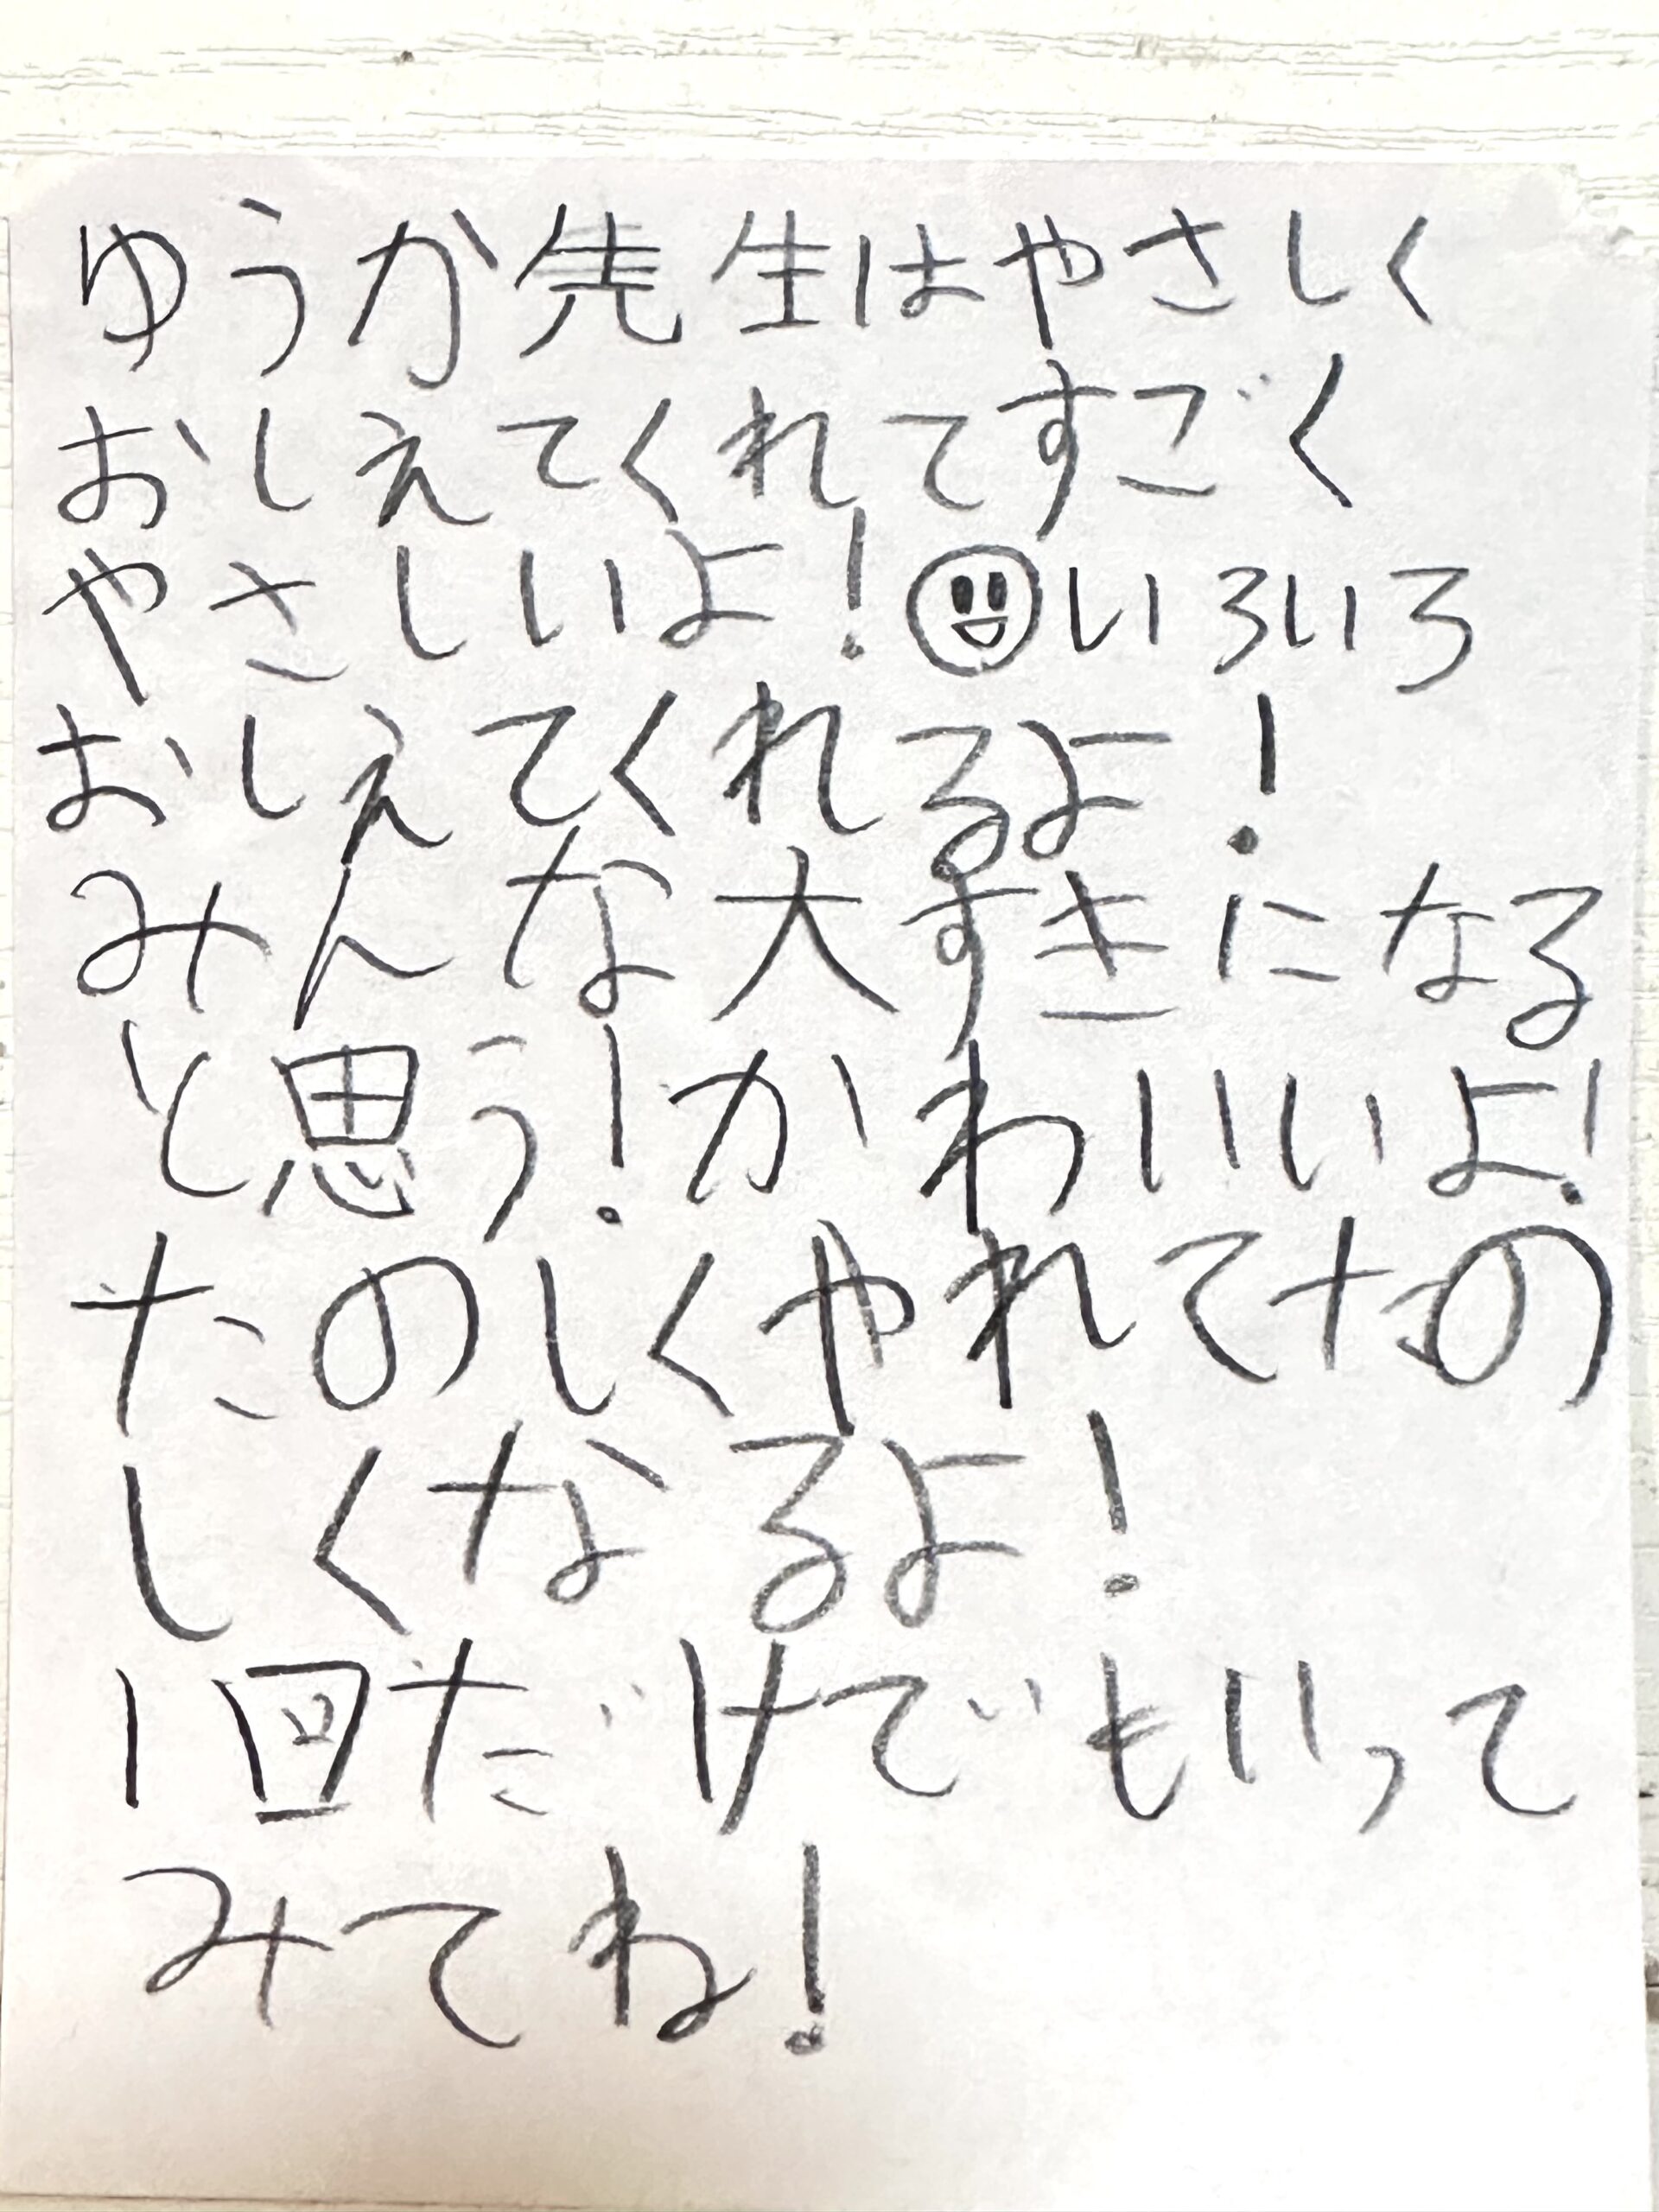 ゆうか先生はやさしく
おしえてくれてすごく
やさしいよ!いろいろ
おしえてくれるよ!
みんな大すきになる
と思う!かわいいよ!
たのしくやれてたの
しくなるよ!
1回だけでもいって
みてね!